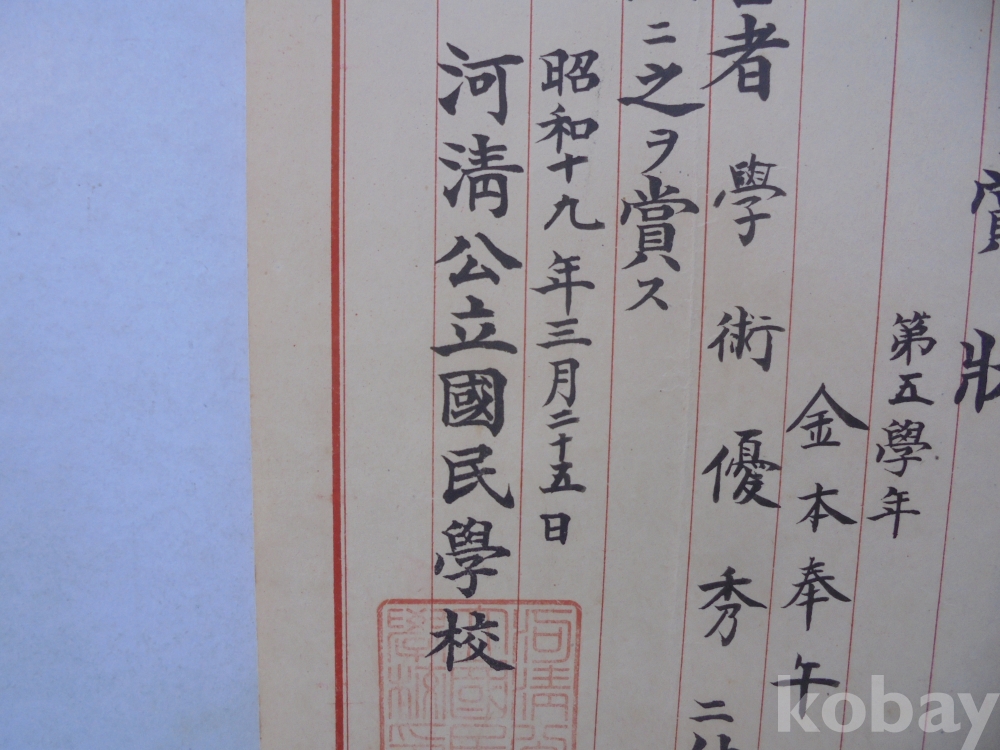 賞狀
第五學年
金本奉午
者學術優秀ニ
ニ之ヲ賞ス
昭和十九年三月二十五日
河淸公立國民學校
河淸公
立國民
學校
kobay